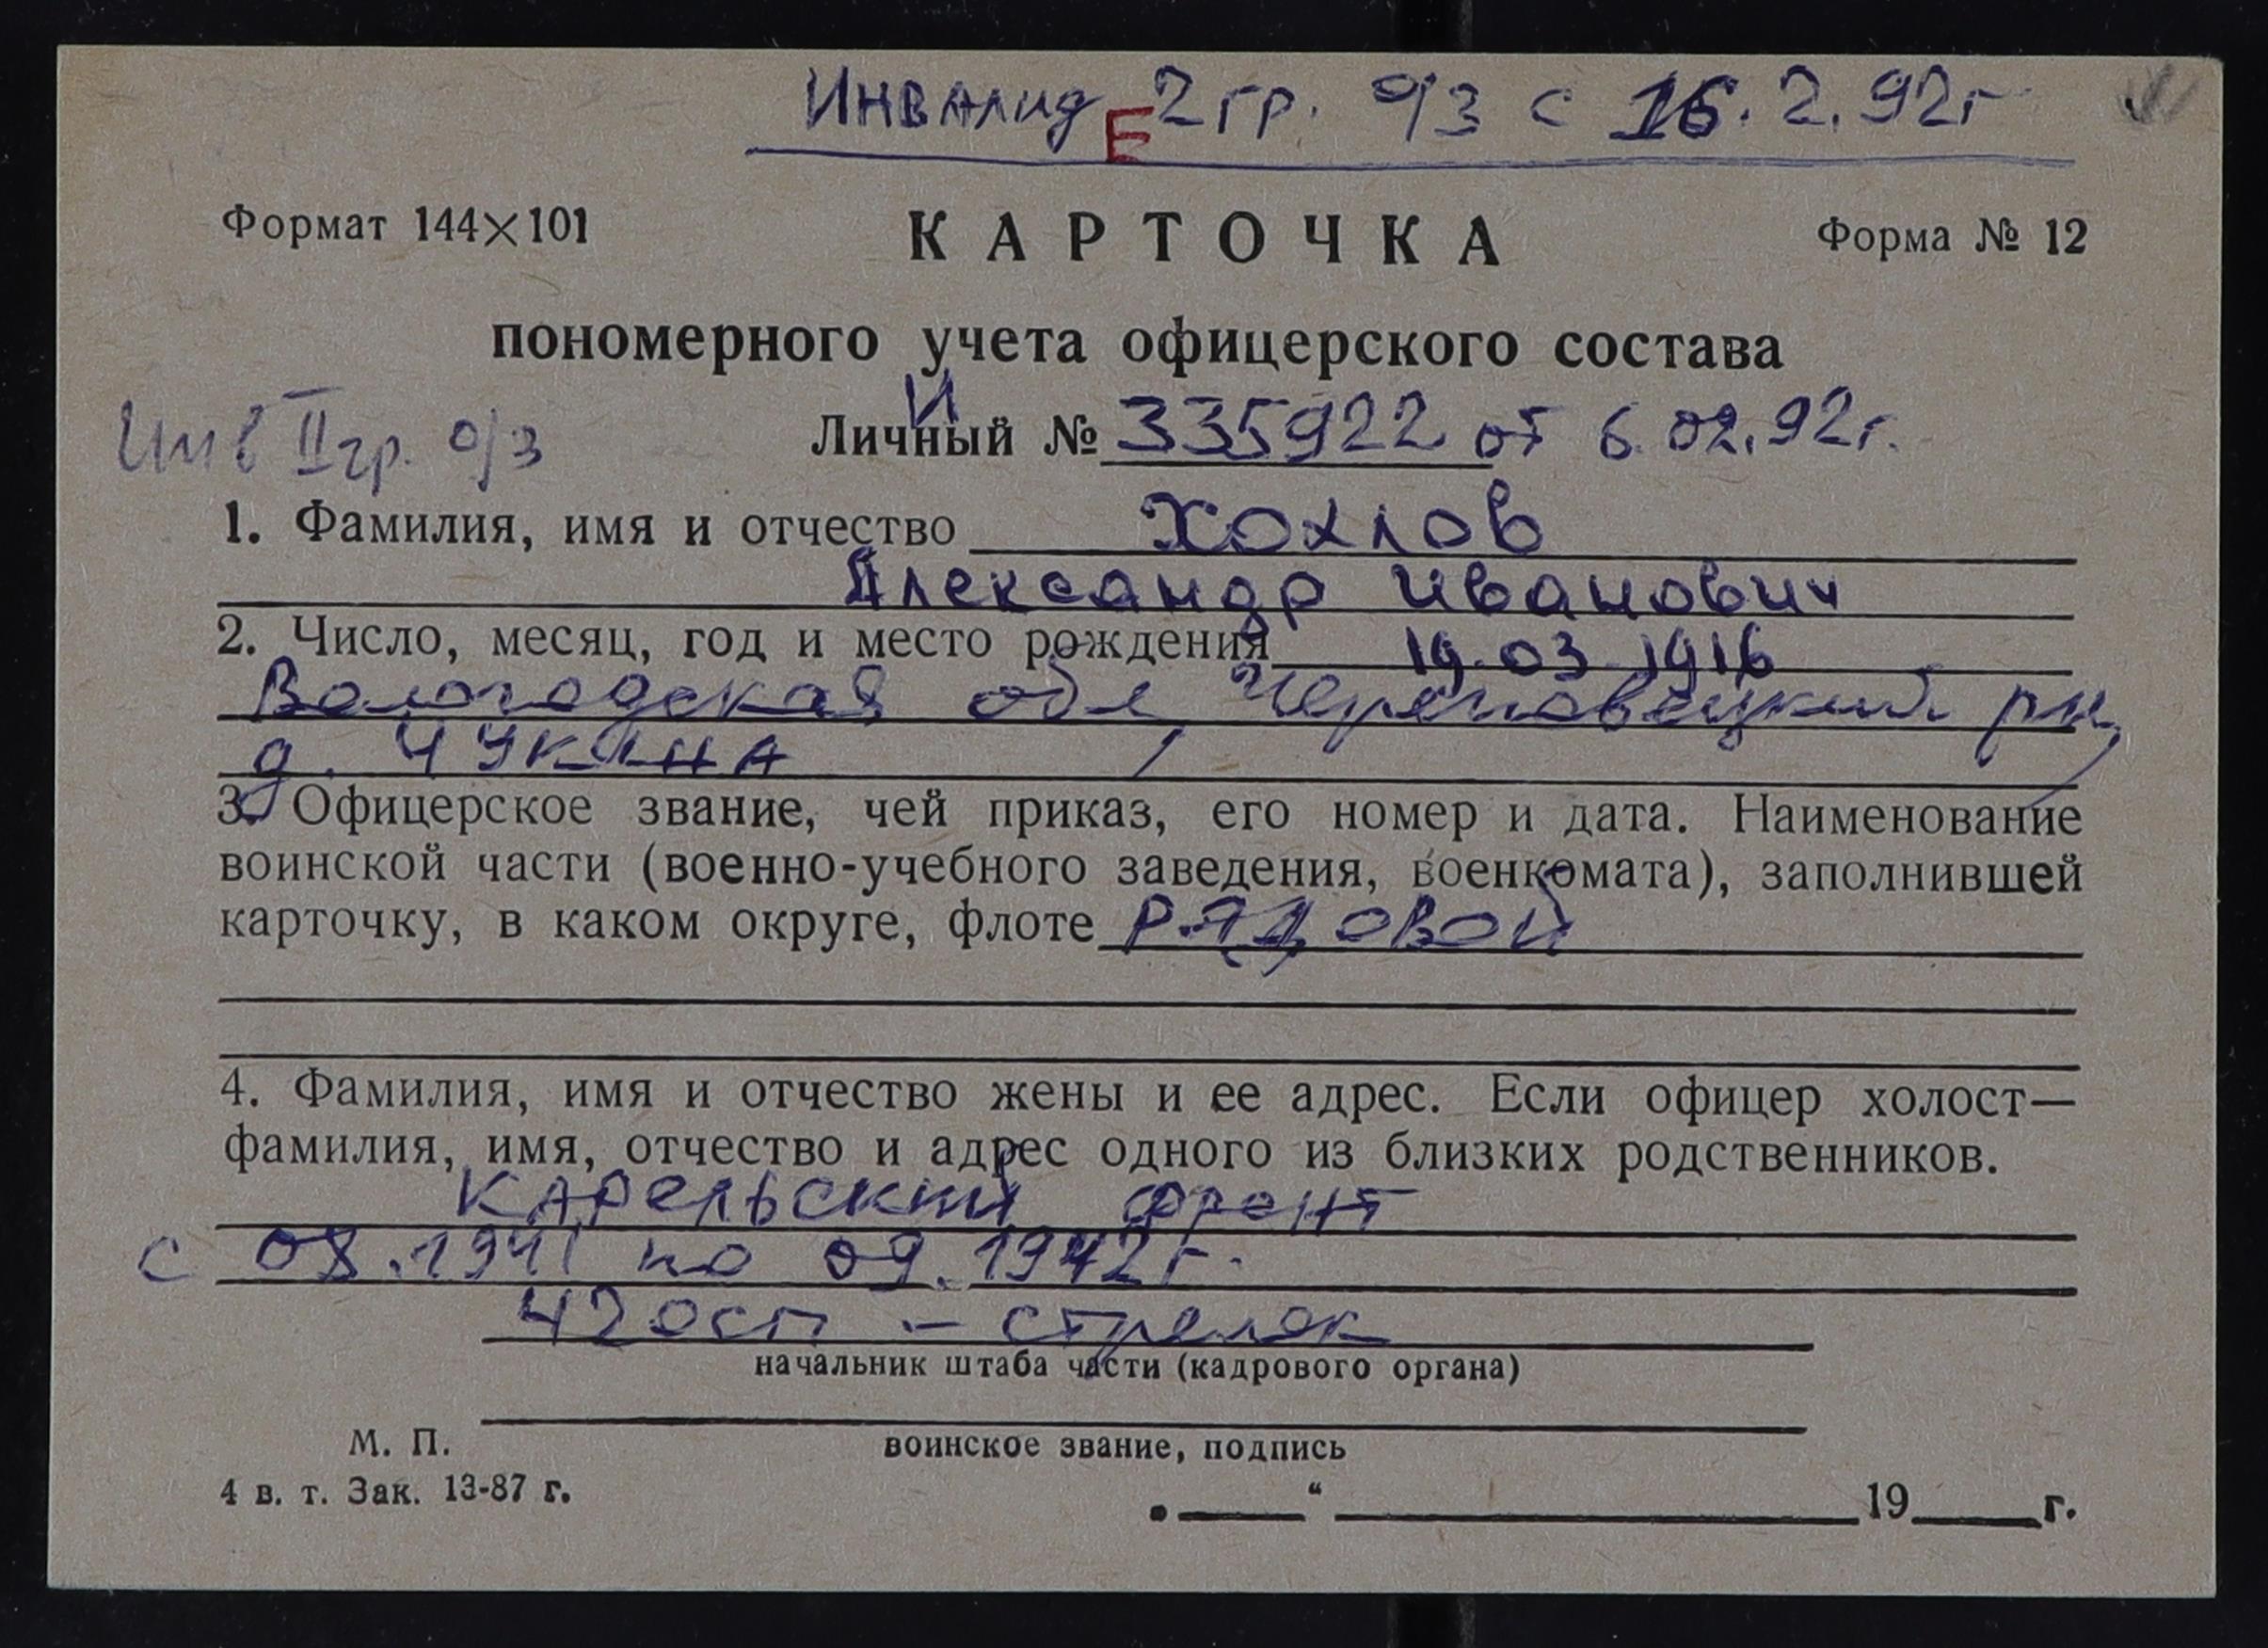 Инвалид 2 гр. о/з с 16.2.92г
Е
Формат 144×101 КАРТОЧКА Форма № 12
пономерного учета офицерского состава
И
Инв II гр. о/з Личный № 335922 от 6.02.92г.
1. Фамилия, имя и отчество Хохлов
Александр Иванович
2. Число, месяц, год и место рождения 19.03.1916
Вологодская обл, Череповецкий рн,
д. Чукина
3. Офицерское звание, чей приказ, его номер и дата. Наименование
воинской части (военно-учебного заведения, военкомата), заполнившей
карточку, в каком округе, флоте РЯДОВОЙ
4. Фамилия, имя и отчество жены и ее адрес. Если офицер холост—
фамилия, имя, отчество и адрес одного из близких родственников.
Карельский фронт
с 08.1941 по 09.1942г.
42 осп – стрелок
начальник штаба части (кадрового органа)
М. П. воинское звание, подпись
4 в. т. Зак. 13-87 г.
„ “ 19 г.